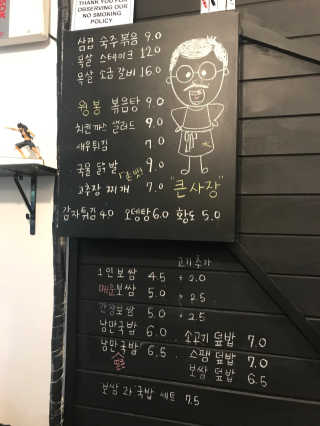 THANK YOU FOR
OBSERVING OUR
NO SMOKING
POLICY
삼겹 숙주볶음 9.0
목살 스테이크 12.0
목살 소금갈비 16.0
윙봉 볶음탕 9.0
치킨까스 샐러드 9.0
새우튀김 7.0
국물 닭발 9.0
고추장 찌개 7.0
"큰사장"
감자튀김 4.0 오뎅탕 6.0 황도 5.0
고기추가
1인보쌈 4.5 + 2.0
매운보쌈 5.0 + 2.5
간장보쌈 5.0 + 2.5
낭만국밥 6.0 . 소고기 덮밥 7.0
낭만국밥 6.5 . 스팸 덮밥 7.0
보쌈 덮밥 6.5
보쌈과 국밥 세트 7.5